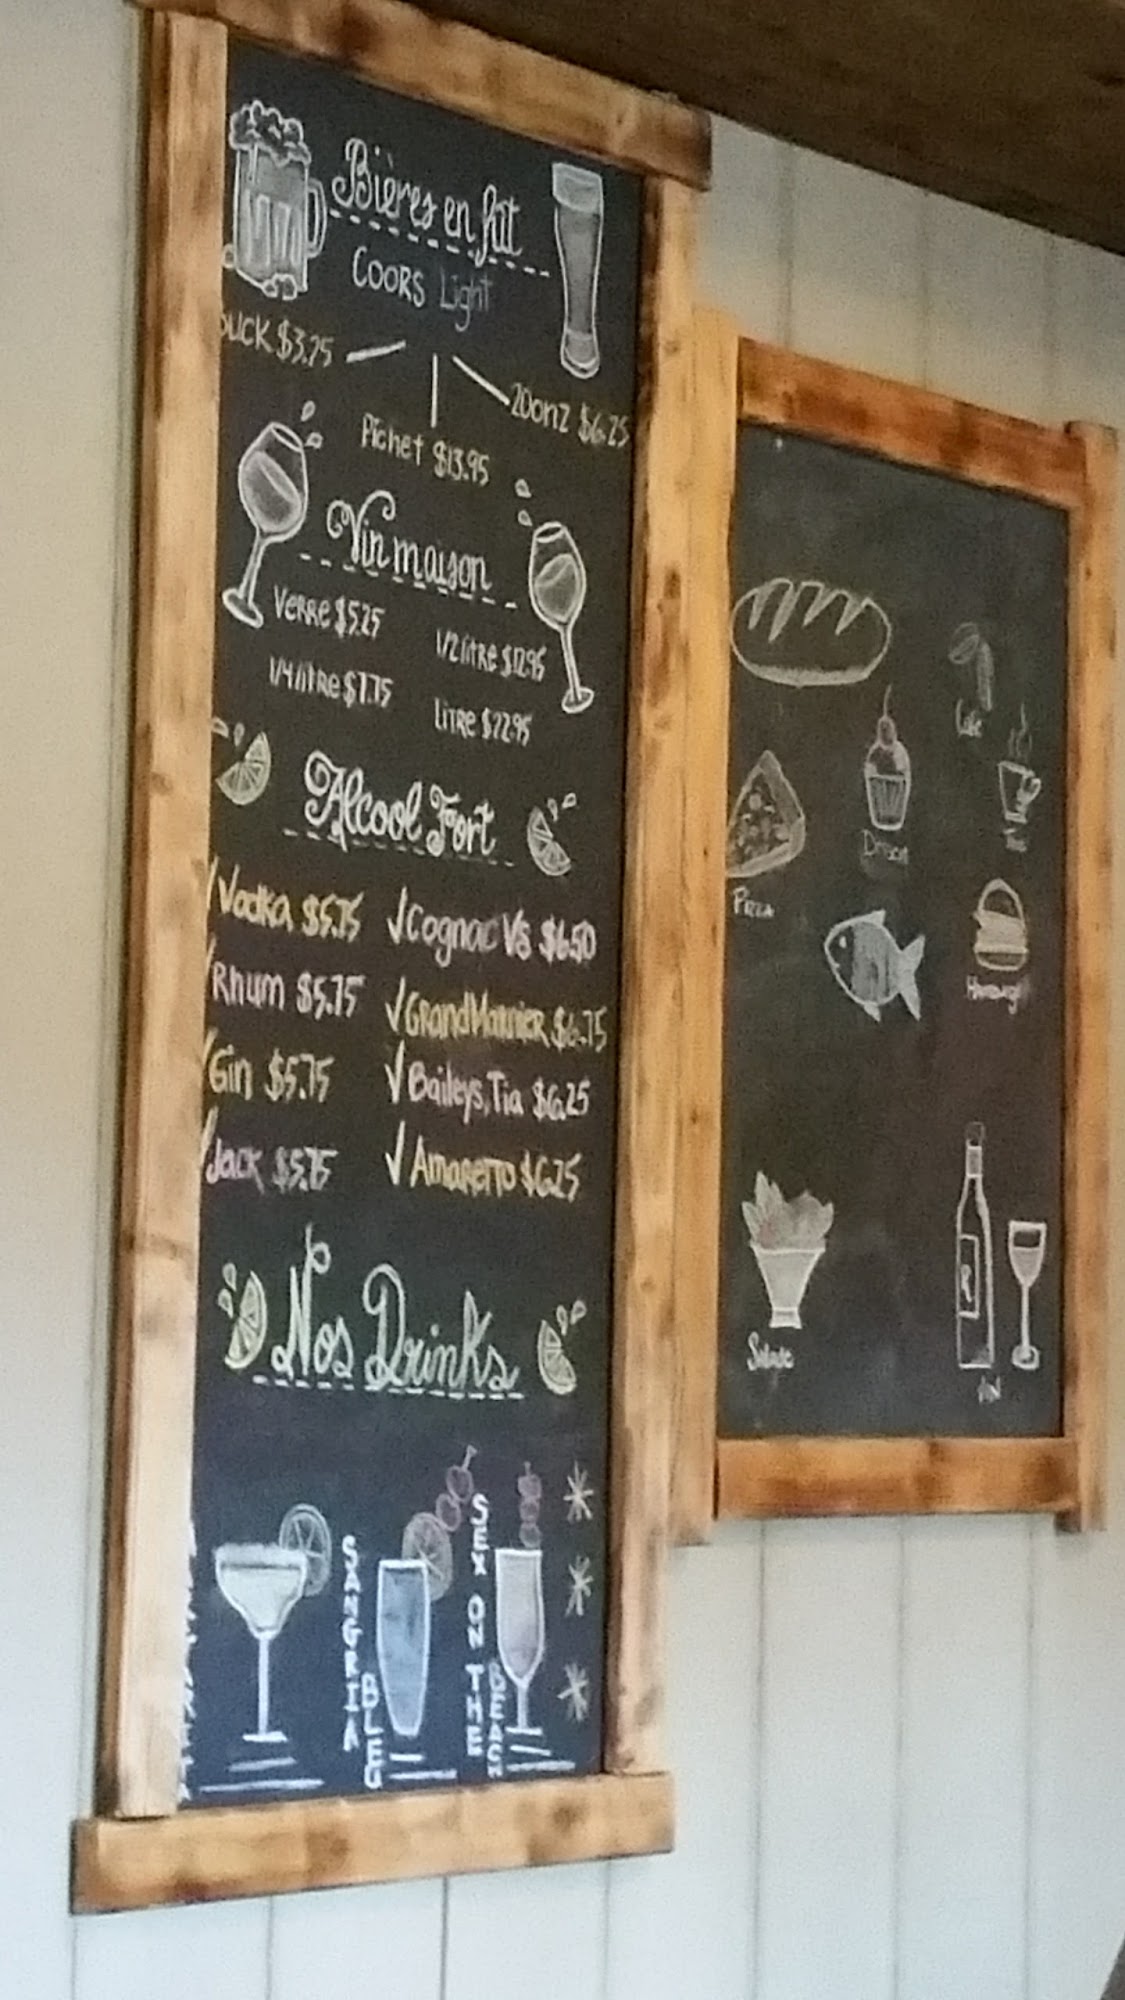 Bières en fût
Coors Light
Buck $3.25
20onz $6.25
Pichet $13.95
Vin maison
Verre $5.25
1/2 litre $12.95
1/4 litre $7.75
Litre $22.95
Alcool Fort
Vodka $5.75
Cognac VS $6.50
Rhum $5.75
Grand Marnier $6.75
Gin $5.75
Baileys, Tia $6.25
Jack $5.75
Amaretto $6.25
Nos Drinks
SANGRIA
BLEU
SEX ON THE
BEACH
Café
Dessert
Thé
Pizza
Salade
R
Vin